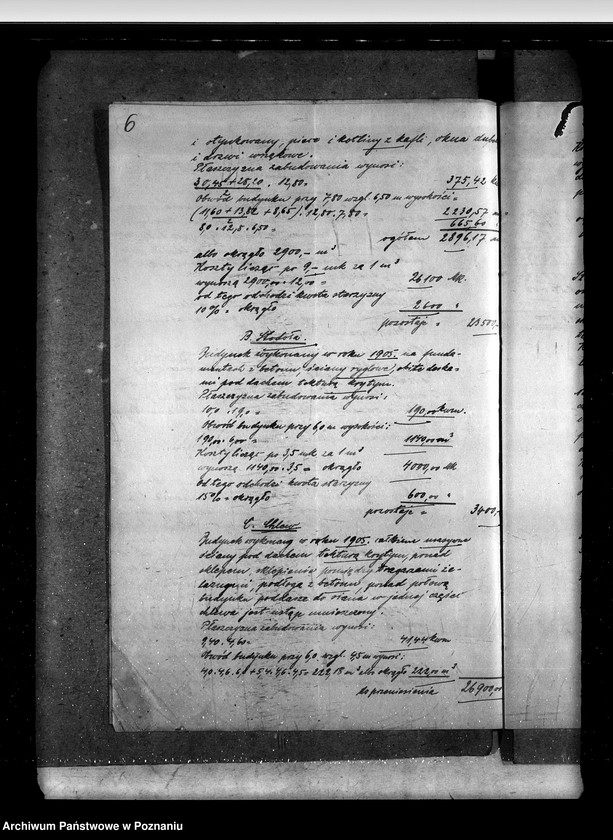 6
i otynkowany, piece i kotliny z kafli, okna dubel
i drzwi wnękowe.
Płaszczyzna zabudowania wynosi:
30,45 + 28,20 . 12,80 = 375,42 k
2
Obwód budynku przy 7,80 wzgl. 6,50 m wysokości =
(11,60 + 13,82 + 8,65) . 12,80 . 7,80 = 2230,57 m
2
8,0 . 12,5 . 6,50 = 665,60
ogółem 2896,17 m
albo okrągło 2900,– m³
Koszty licząc po 9,– mk za 1 m³
wynoszą 2900,00 . 12,00 = 26100 Mk.
od tego odchodzi kwota starzyzny
10% = okrągło 2600 "
pozostaje = 23500,–
B. Stodoła.
Budynek wykonany w roku 1905. na funda-
mentach z betonu, ściany ryglowe, obite deska-
mi pod dachem tekturą krytym.
Płaszczyzna zabudowania wynosi:
10,0 . 19,0 = 190,00 kwm.
Obwód budynku przy 6,0 m wysokości:
190,00 . 6,00 = 1140,00 m³
Koszty licząc po 3,5 mk za 1 m³
wynoszą 1140,00 . 3,5 = okrągło 4000,00 Mk
od tego odchodzi kwota starzyzny
15% = okrągło 600,00 "
pozostaje = 3400,–
C. Chlew.
Budynek wykonany w roku 1905. całkiem masywne
ściany pod dachem tekturą krytym, ponad
sklepem sklepienia pomiędzy tragarzami że-
laznymi, podłoga z betonu, ponad połową
budynku poddasze do siana w jednej części
chlewa jest ustęp umieszczony.
Płaszczyzna zabudowania wynosi:
9,40 . 4,60 = 41,44 kwm
Obwód budynku przy 6,0 wzgl. 4,5 m wynosi:
4,0 . 4,6 . 6,0 + 5,4 . 4,6 . 4,50 = 222,18 m³ albo okrągło 222,00 m³
do przeniesienia 26900,00
Archiwum Państwowe w Poznaniu